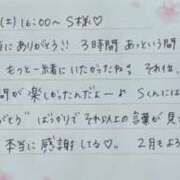 (土) 16:00～ S様♡
当にありがとう!! 3時間 あっという間
もっと一緒に いたかったね。 それは、
間が楽しかったんだよーよ Sくんには
がとう ばっかりで それ以上の言葉が見
本当に感謝してる♡。 2月もよろ